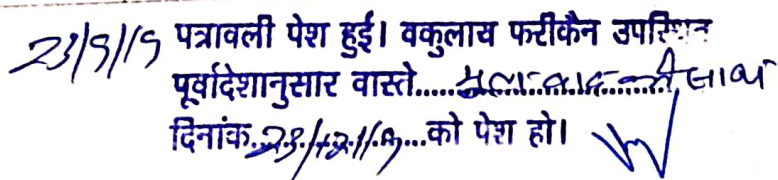 23/9/19 पत्रावली पेश हुई। वकुलाय फरीकैन उपस्थित
पूर्वादेशानुसार वास्ते......मूल वाद के साथ
दिनांक..23/12/19...को पेश हो।